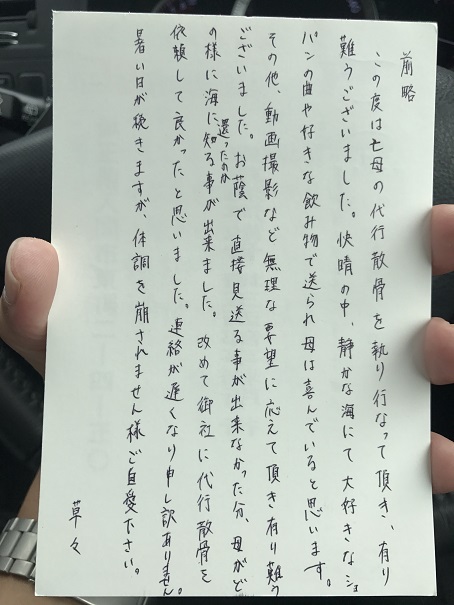 前略
この度は亡母の代行散骨を執り行なって頂き、有り
難うございました。快晴の中、静かな海にて大好きなショ
パンの曲や好きな飲み物で送られ母は喜んでいると思います。
その他、動画撮影など無理な要望に応えて頂き有り難う
ございました。お蔭で直接見送る事が出来なかった分、母がど
の様に海に還ったのか知る事が出来ました。改めて御社に代行散骨を
依頼して良かったと思いました。連絡が遅くなり申し訳ありません。
暑い日が続きますが、体調を崩されません様ご自愛下さい。
草々